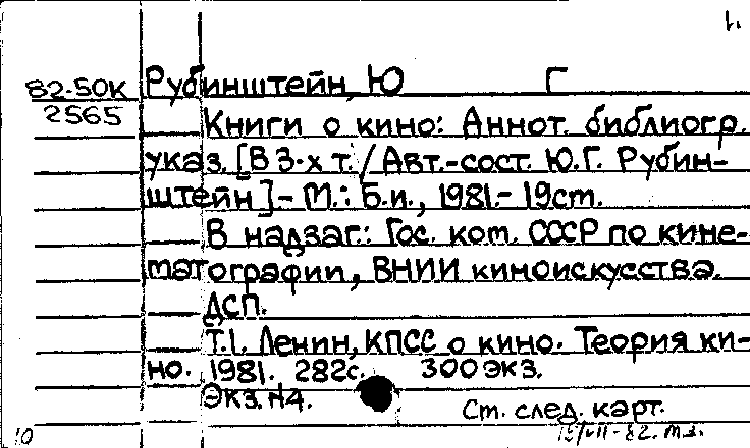 1.
82-50К Рубинштейн, Ю Г
2565
Книги о кино: Аннот. библиогр.
указ. [В 3-х т. / Авт.-сост. Ю.Г. Рубин-
штейн] - М.: Б.и., 1981.- 19cm.
В надзаг.: Гос. ком. СССР по кине-
матографии, ВНИИ киноискусства.
ДСП.
Т.1. Ленин, КПСС о кино. Теория ки-
но. 1981. 282с. 300 экз.
Экз. №4.
Ст. след. карт.
10